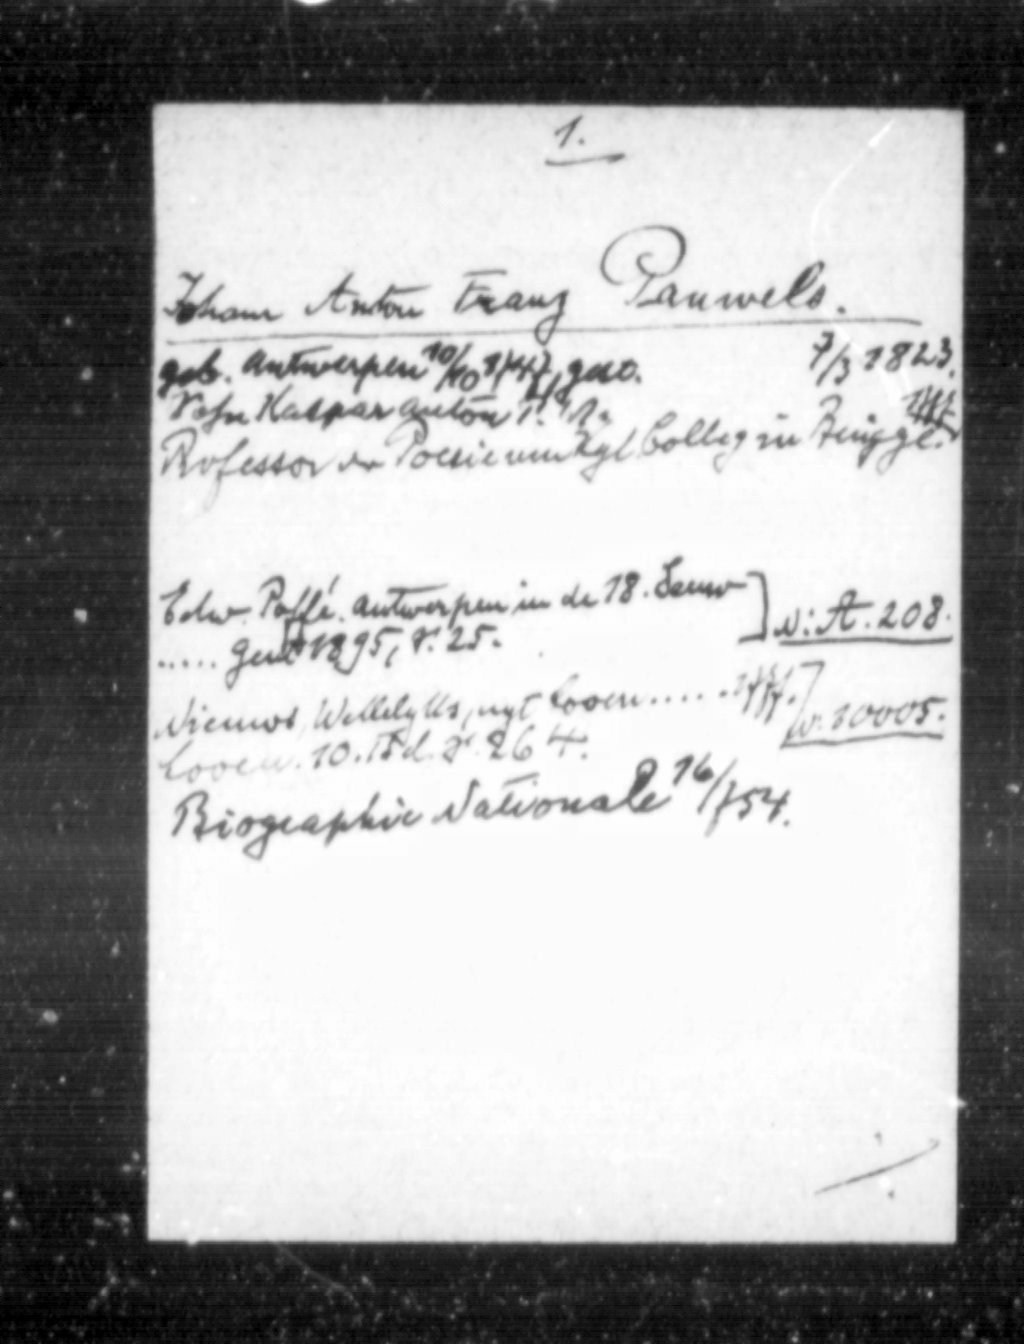 1.
Johann Anton Franz Pauwels.
geb. Antwerpen 10/10 1747, gest. 7/3 1823.
Kaspar Anton P.
Professor der Poesie am Kgl Colleg in Brügge.
Edw. Poffé. Antwerpen in de 18. Eeuw
..... Gent 1895, S. 25.
N: A. 208.
Nieuws, uyt Loven .....
Loven. 10. Bd. S. 264.
N. 10005.
Biographie Nationale 16/754.